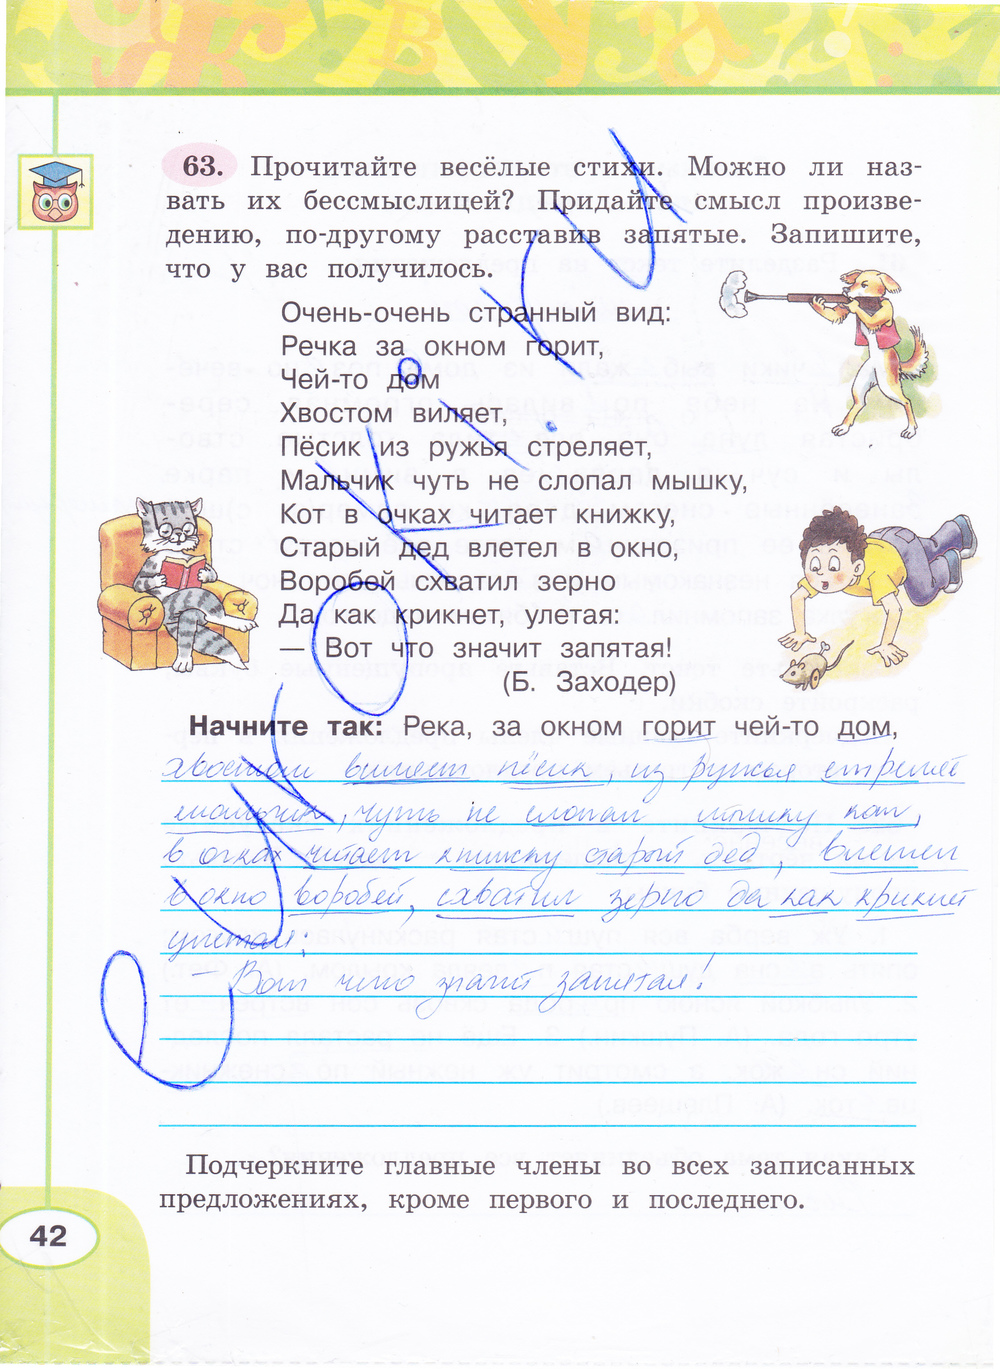 63. Прочитайте весёлые стихи. Можно ли наз-
вать их бессмыслицей? Придайте смысл произве-
дению, по-другому расставив запятые. Запишите,
что у вас получилось.
Очень-очень странный вид:
Речка за окном горит,
Чей-то дом
Хвостом виляет,
Пёсик из ружья стреляет,
Мальчик чуть не слопал мышку,
Кот в очках читает книжку,
Старый дед влетел в окно,
Воробей схватил зерно
Да как крикнет, улетая:
— Вот что значит запятая!
(Б. Заходер)
Начните так: Река, за окном горит чей-то дом,
хвостом виляет пёсик, из ружья стреляет
мальчик, чуть не слопал мышку кот,
в очках читает книжку старый дед, влетел
в окно воробей, схватил зерно да как крикнет
улетая:
— Вот что значит запятая!
Подчеркните главные члены во всех записанных
предложениях, кроме первого и последнего.
42